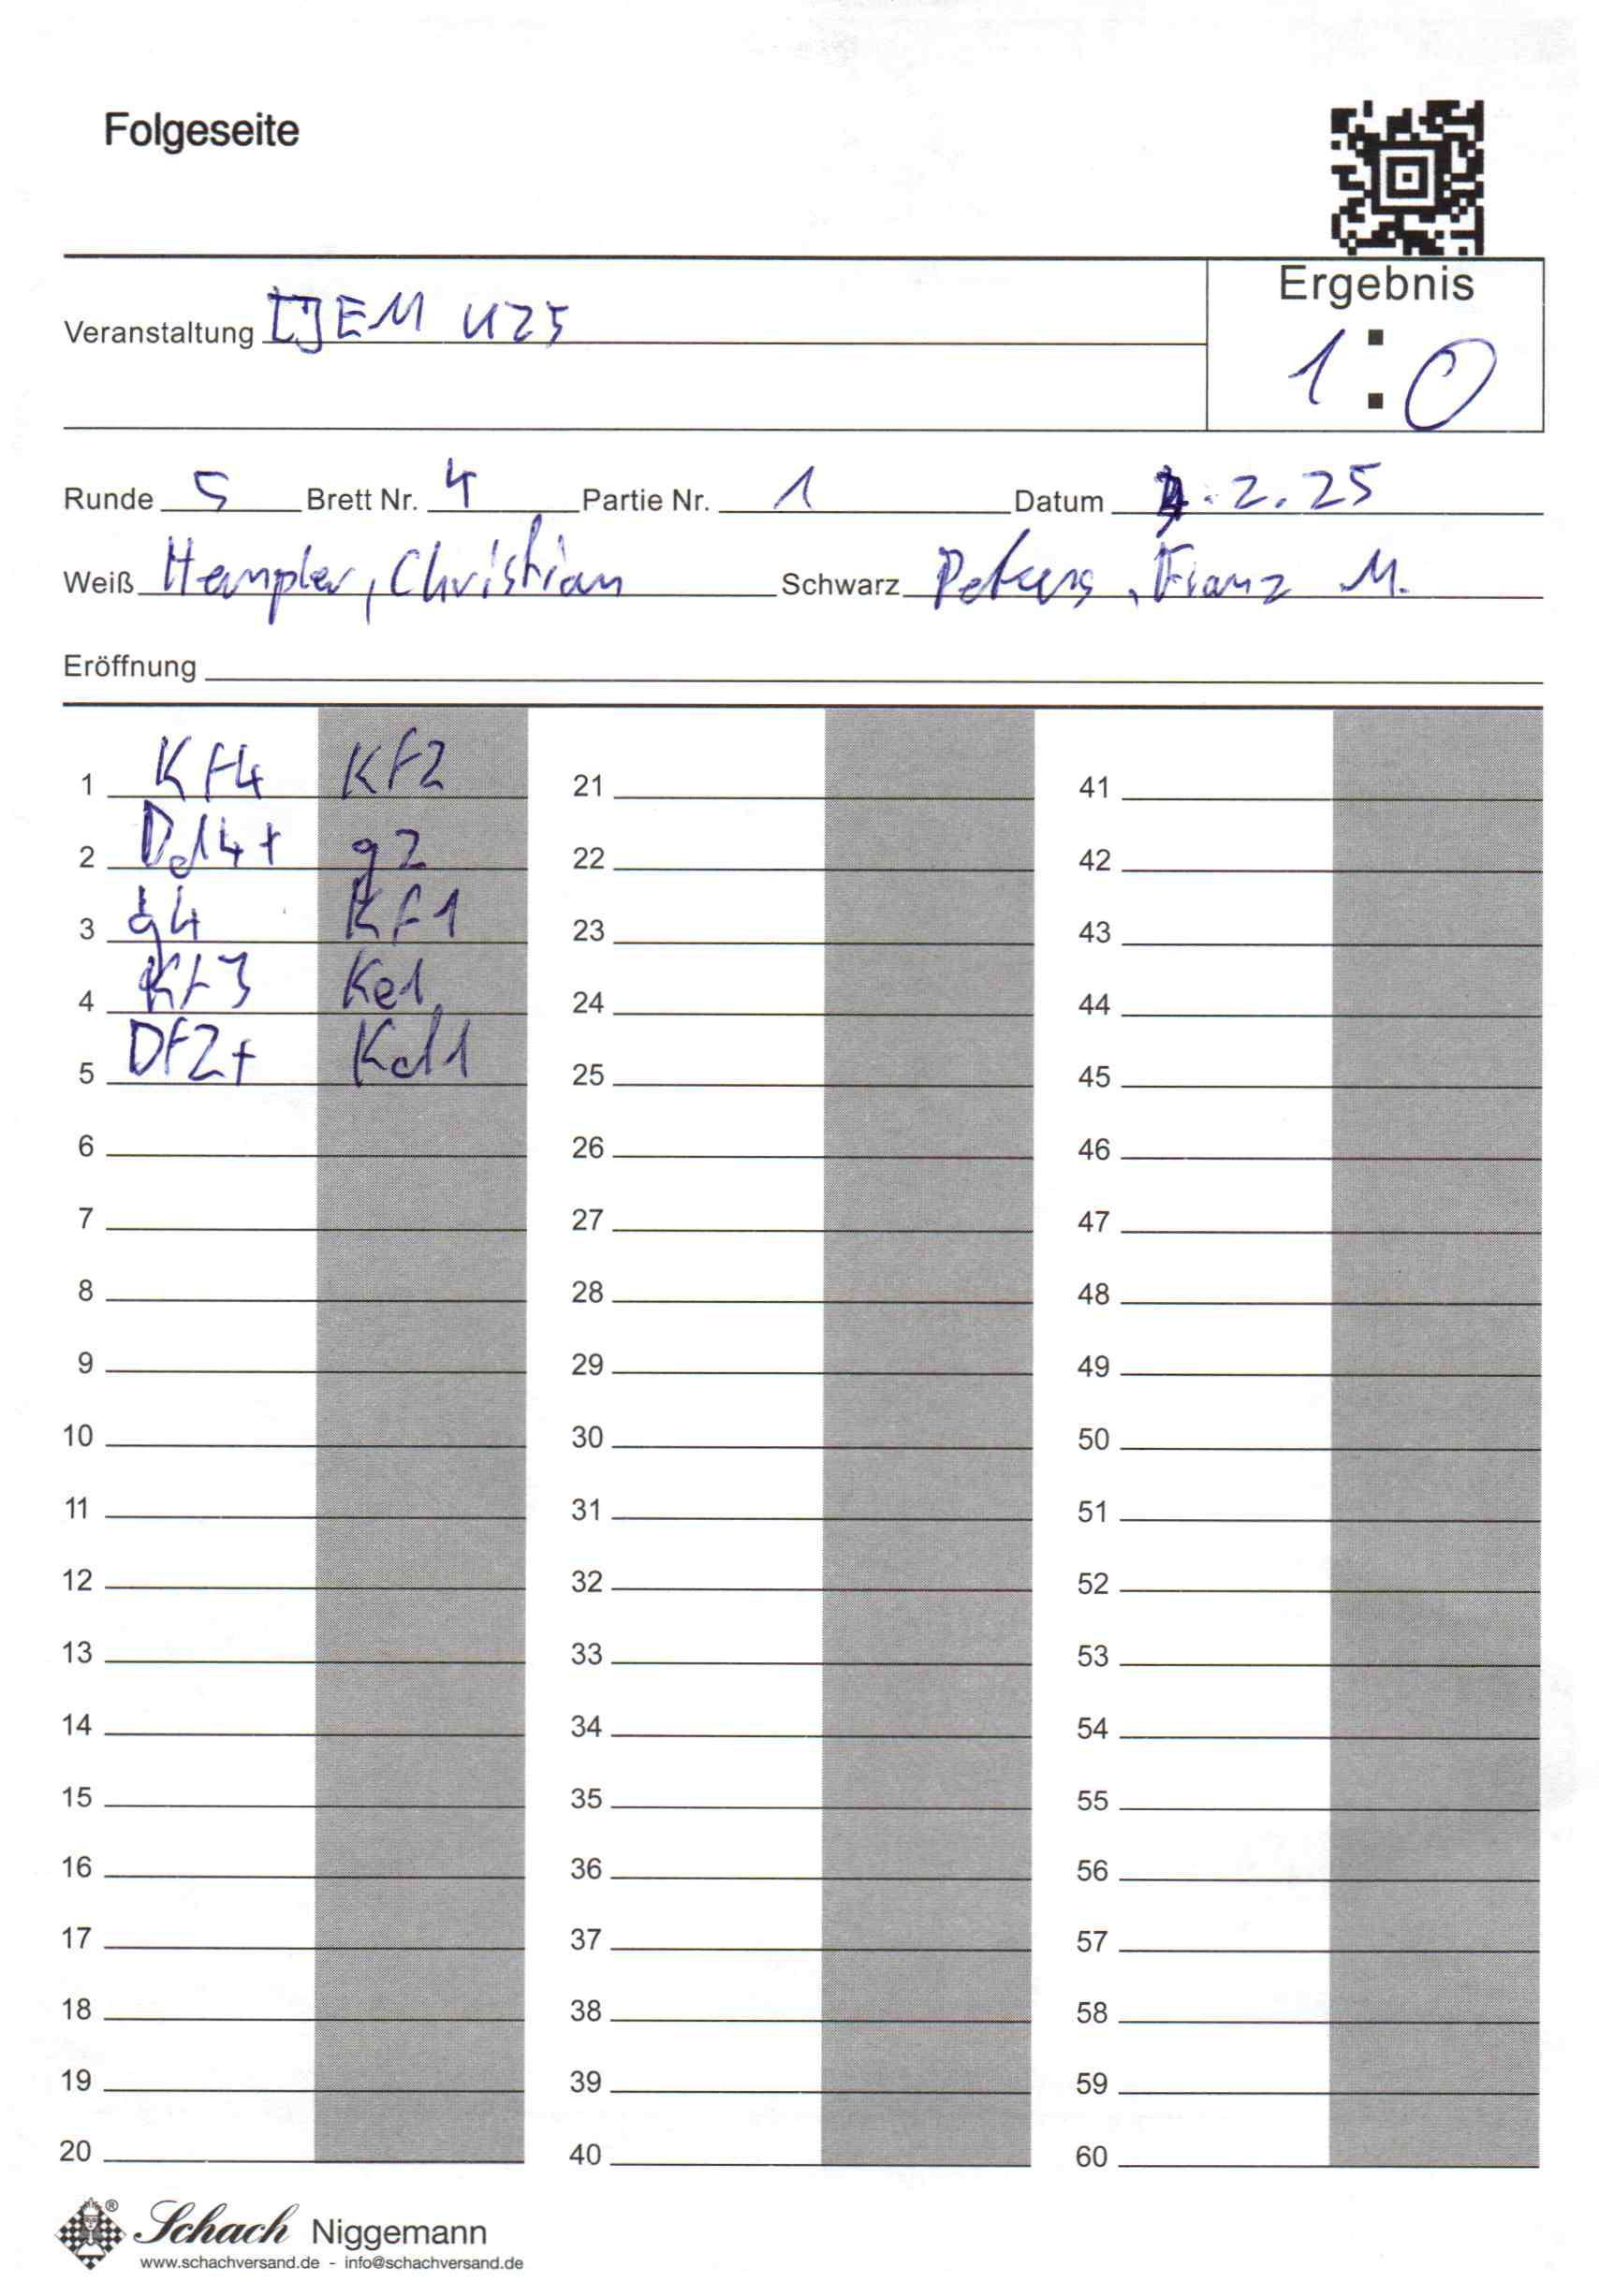 Folgeseite
Ergebnis
Veranstaltung []EM U25
1:0
Runde 5 Brett Nr. 4 Partie Nr. 1 Datum .2.25
Weiß Hempler, Christian Schwarz Peters, Franz M.
Eröffnung
1 Kf4 Kf2 21 41
2 Dd4+ g2 22 42
3 g4 Kf1 23 43
4 Kf3 Ke1 24 44
5 Df2+ Kd1 25 45
6 26 46
7 27 47
8 28 48
9 29 49
10 30 50
11 31 51
12 32 52
13 33 53
14 34 54
15 35 55
16 36 56
17 37 57
18 38 58
19 39 59
20 40 60
® Schach Niggemann
www.schachversand.de - info@schachversand.de